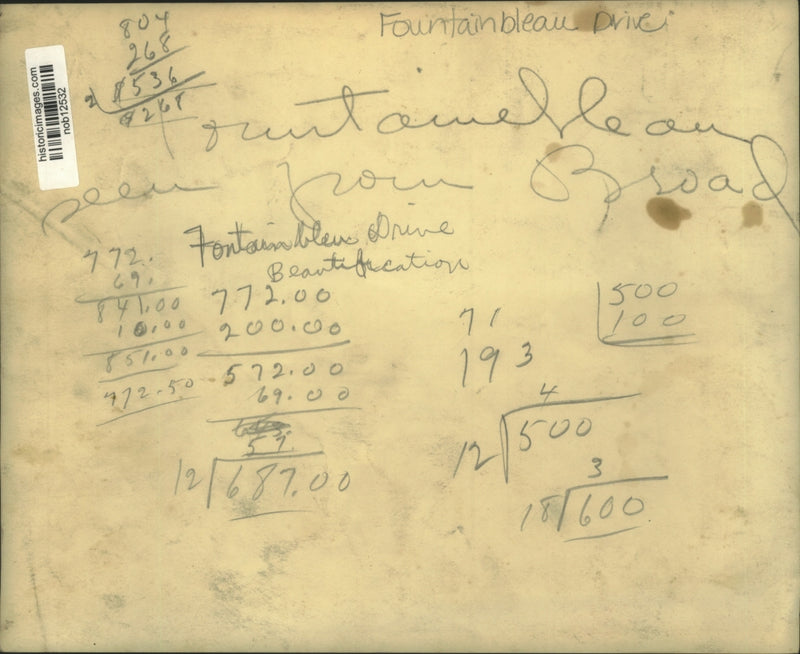 Fountainbleau Drive
804
268
2 536
268
historicimages.com
nob12532
Fountainebleau
seen from Broad
Fontainbleu Drive
Beautification
772.
69.
841.00
10.00
851.00
772.50
772.00
200.00
572.00
69.00
57
12 687.00
71
193
500
100
4
12 500
3
18 600